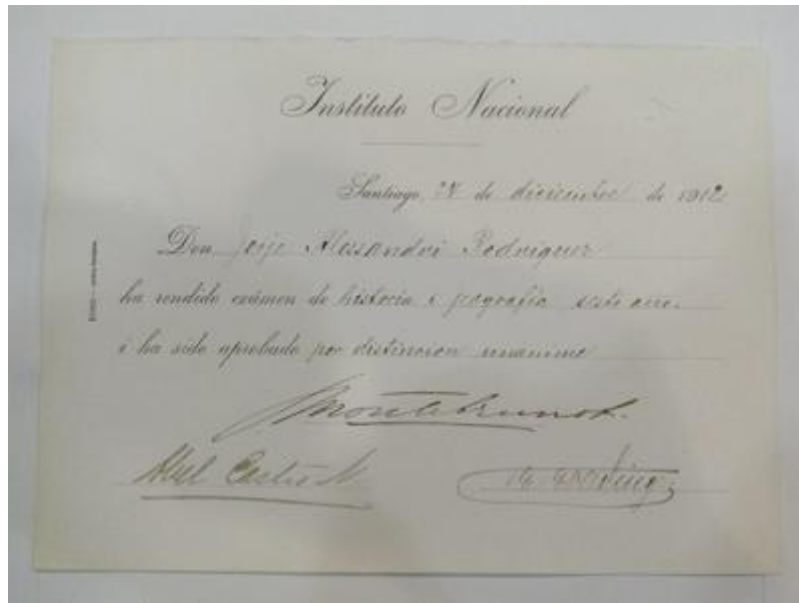 Instituto Nacional
Santiago, de diciembre de 1912
Don Jorje Alessandri Rodriguez
ha rendido exámen de historia i jeografia sesto año.
i ha sido aprobado por distincion unanime
Montebruno L.
Abel Castro N.